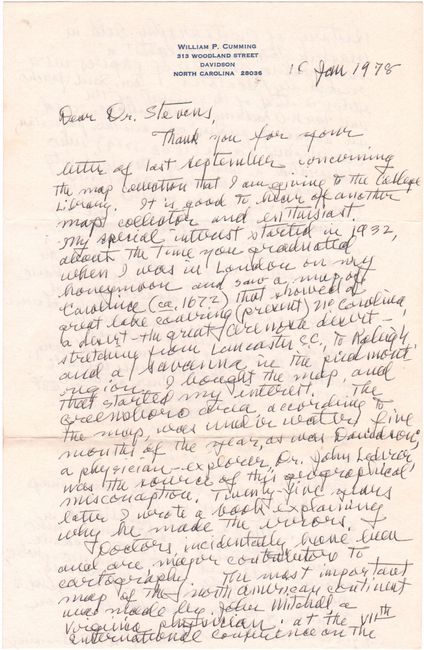 WILLIAM P. CUMMING
313 WOODLAND STREET
DAVIDSON
NORTH CAROLINA 28036
Jan 1978
Dear Dr. Stevens,
Thank you for your
letter of last September concerning
the map collection that I am giving to the College
Library. It is good to hear of another
map collector and enthusiast.
My special interest started in 1932,
about the time you graduated
when I was in London on my
honeymoon and saw a map of
Carolina (ca. 1672) that showed a
great lake covering (present) N. Carolina
a desert - the great Arenosa desert -
stretching from Lancaster S.C. to Raleigh,
and a savanna in the piedmont
region. I bought the map, and
that started my interest. The
Greensboro area according to
the map, was under water five
months of the year, as was Davidson;
a physician-explorer, Dr. John Lederer,
was the source of this geographical
misconception. Twenty-five years
later I wrote a book explaining
why he made the errors.
Doctors, incidentally, have been
and are, major contributors to
cartography. The most important
map of the North American continent
was made by John Mitchell, a
Virginia physician; at the VIIth
International Conference on the